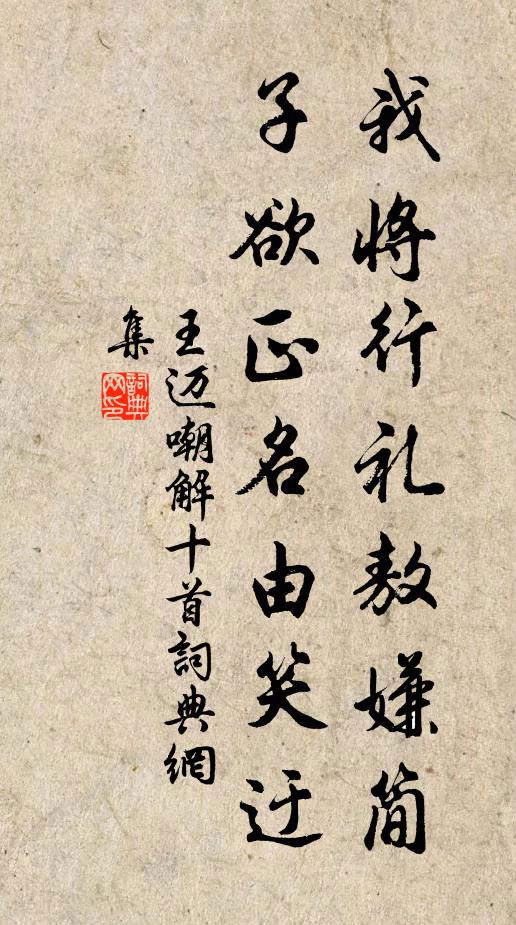 我将行礼敖嫌简
子欲正名由笑迂
王迈嘲解十首詞典網
集
詞典
网印